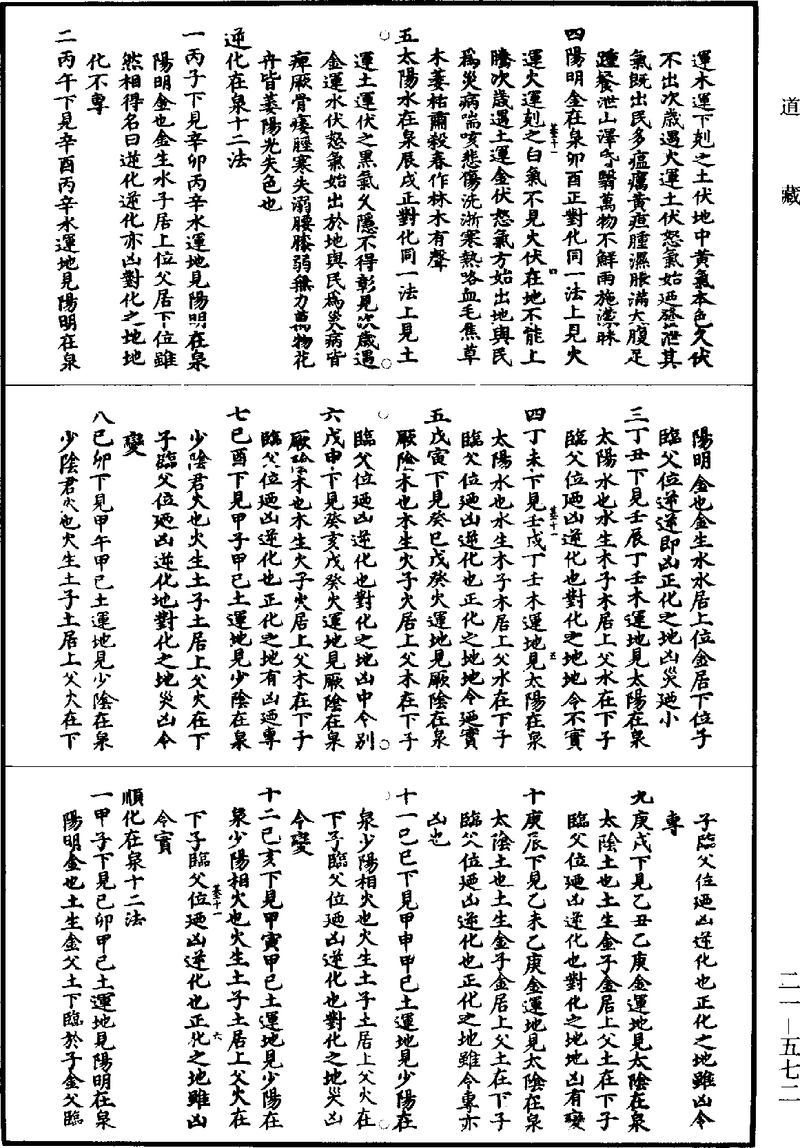 道藏
運木運下剋之土伏地中黃氣本色久伏
不出次歲遇火運土伏怒氣始迺發泄其
氣既出民多瘟癘黃疸腫濕脹滿大腹足
踵餐泄山澤昏翳萬物不鮮雨施濛昧
四陽明金在泉卯酉正對化同一法上見火
運火運剋之白氣不見火伏在地不能上
騰次歲遇土運金伏怒氣方始出地與民
爲災病喘咳悲傷洗淅寒熱咯血毛焦草
木萎枯肅殺春作林木有聲
五太陽水在泉辰戌正對化同一法上見土
運土運伏之黑氣久隱不得彰見次歲遇
金運水伏怒氣始出於地與民爲災病皆
痺厥骨痿脛寒失溺腰膝弱無力萬物花
卉皆萎陽光失色也
逆化在泉十二法
一丙子下見辛卯丙辛水運地見陽明在泉
陽明金也金生水子居上位父居下位雖
然相得名曰逆化逆化亦凶對化之地地
化不專
二丙午下見辛酉丙辛水運地見陽明在泉
陽明金也金生水水居上位金居下位子
臨父位逆逆即凶正化之地凶災迺小
三丁丑下見壬辰丁壬木運地見太陽在泉
太陽水也水生木子木居上父水在下子
臨父位迺凶逆化也對化之地地令不實
四丁未下見壬戌丁壬木運地見太陽在泉
太陽水也水生木子木居上父水在下子
臨父位迺凶逆化也正化之地地令迺實
五戊寅下見癸巳戊癸火運地見厥陰在泉
厥陰木也木生火子火居上父木在下子
臨父位迺凶逆化也對化之地凶中令別
六戊申下見癸亥戊癸火運地見厥陰在泉
厥陰木也木生火子火居上父木在下子
臨父位迺凶逆化也正化之地有凶迺專
七己酉下見甲子甲己土運地見少陰在泉
少陰君火也火生土子土居上父火在下
子臨父位迺凶逆化地對化之地災凶令
變
八己卯下見甲午甲己土運地見少陰在泉
少陰君火也火生土子土居上父火在下
子臨父位迺凶逆化也正化之地雖凶令
專
九庚戌下見乙丑乙庚金運地見太陰在泉
太陰土也土生金子金居上父土在下子
臨父位迺凶逆化也對化之地地凶有變
十庚辰下見乙未乙庚金運地見太陰在泉
太陰土也土生金子金居上父土在下子
臨父位迺凶逆化也正化之地雖令專亦
凶也
十一己巳下見甲申甲己土運地見少陽在
泉少陽相火也火生土子土居上父火在
下子臨父位迺凶逆化也對化之地災凶
令變
十二己亥下見甲寅甲己土運地見少陽在
泉少陽相火也火生土子土居上父火在
下子臨父位迺凶逆化也正化之地雖凶
令實
順化在泉十二法
一甲子下見己卯甲己土運地見陽明在泉
陽明金也土生金父土下臨於子金父臨
二一—五七二